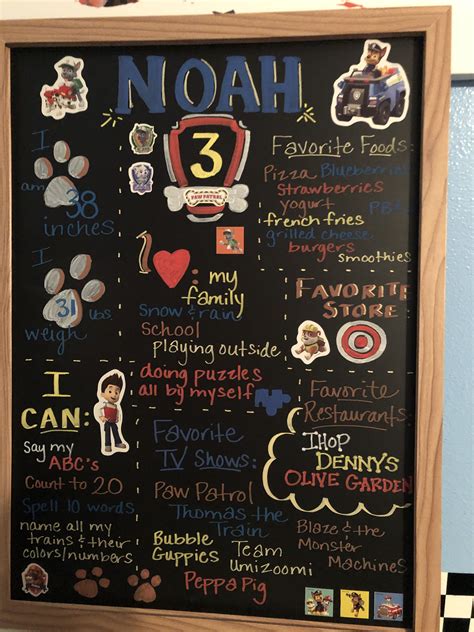 NOAH
I
am 38
inches
I
31 lbs
weigh
3
PAW PATROL
I ♥ :
my
family
Snow & rain
School
playing outside
doing puzzles
all by myself
Favorite Foods:
Pizza Blueberries
Strawberries
yogurt PB&J
french fries
grilled cheese
burgers
smoothies
FAVORITE
STORE
I
CAN:
Say my
ABC's
Count to 20
Spell 10 words
name all my
trains & their
colors/numbers
Favorite
TV Shows:
Paw Patrol
Thomas the
Train
Bubble
Guppies
Team
Umizoomi
Peppa Pig
Blaze & the
Monster
Machines
Favorite
Restaurants:
IHOP
DENNY'S
OLIVE GARDEN